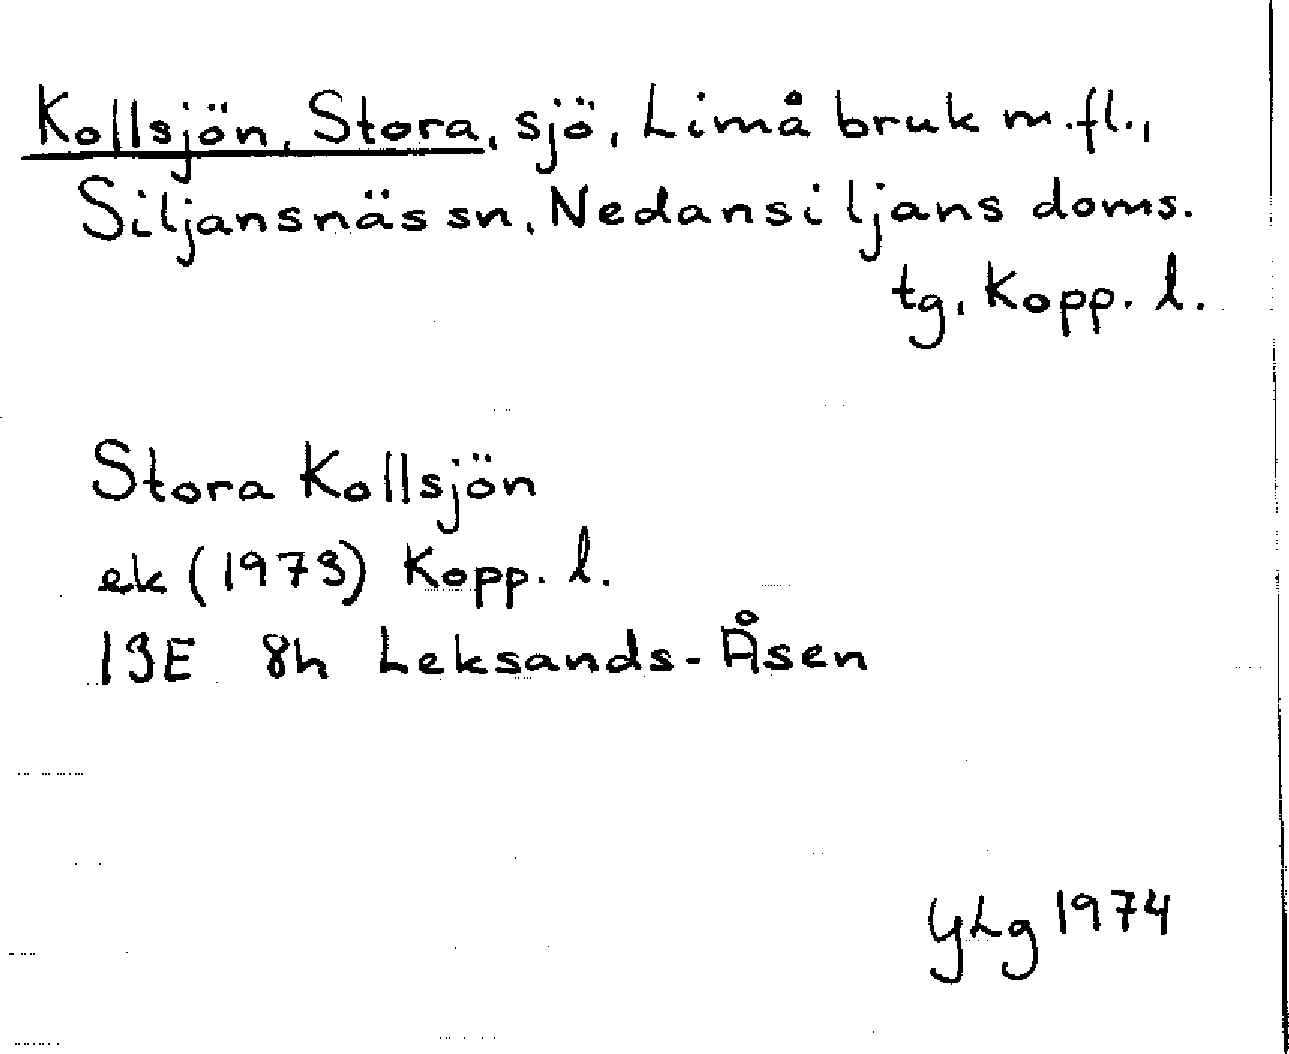 Kollsjön, Stora, sjö, Limå bruk m.fl.,
Siljansnäs sn, Nedansiljans doms.
tg, Kopp. l.
Stora Kollsjön
ek (1973) Kopp. l.
13E 8h Leksands-Åsen
YLg 1974